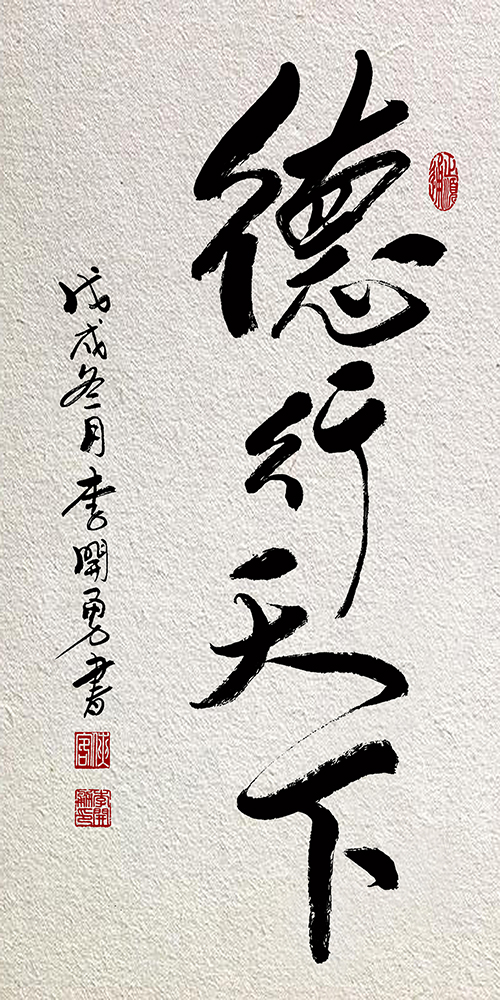 德行天下
戊戌冬月李開勇書